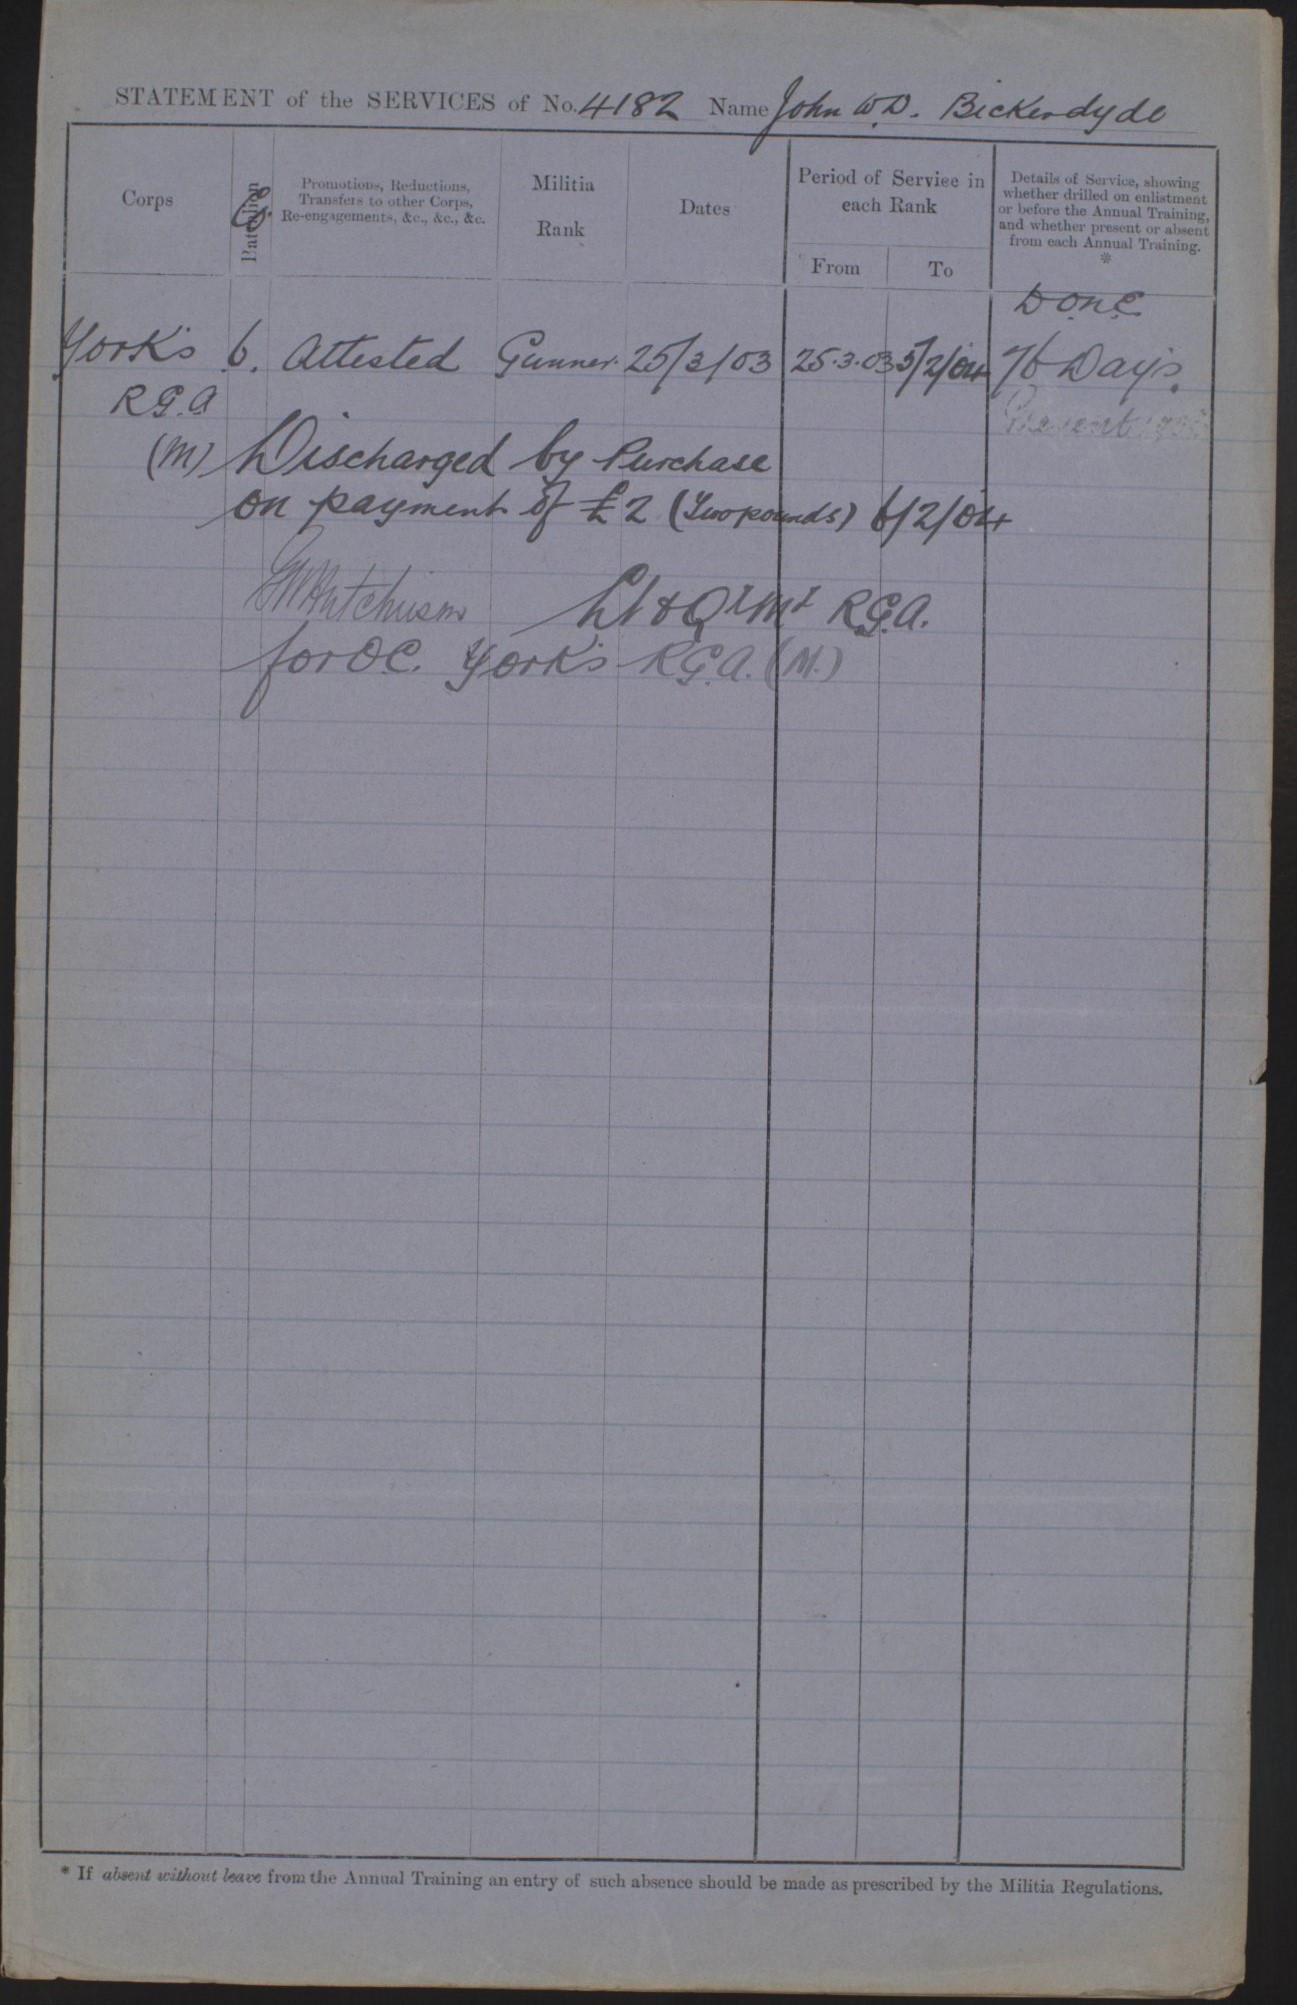 STATEMENT of the SERVICES of No. 4182 Name John W.D. Bickerdyde
Corps
Battalion
Co.
Promotions, Reductions,
Transfers to other Corps,
Re-engagements, &c., &c., &c.
Militia
Rank
Dates
Period of Service in
each Rank
From
To
Details of Service, showing
whether drilled on enlistment
or before the Annual Training,
and whether present or absent
from each Annual Training.
*
D.O.N.E.
York's 6. Attested Gunner. 25/3/03 25.3.03 5/2/04 76 Day's.
R.G.A
Present
(M) Discharged by Purchase
on payment of £2 (Two pounds) 6/2/04
Hutchison Lt & Qr Mr R.G.A.
for O.C. York's R.G.A. (M.)
* If absent without leave from the Annual Training an entry of such absence should be made as prescribed by the Militia Regulations.